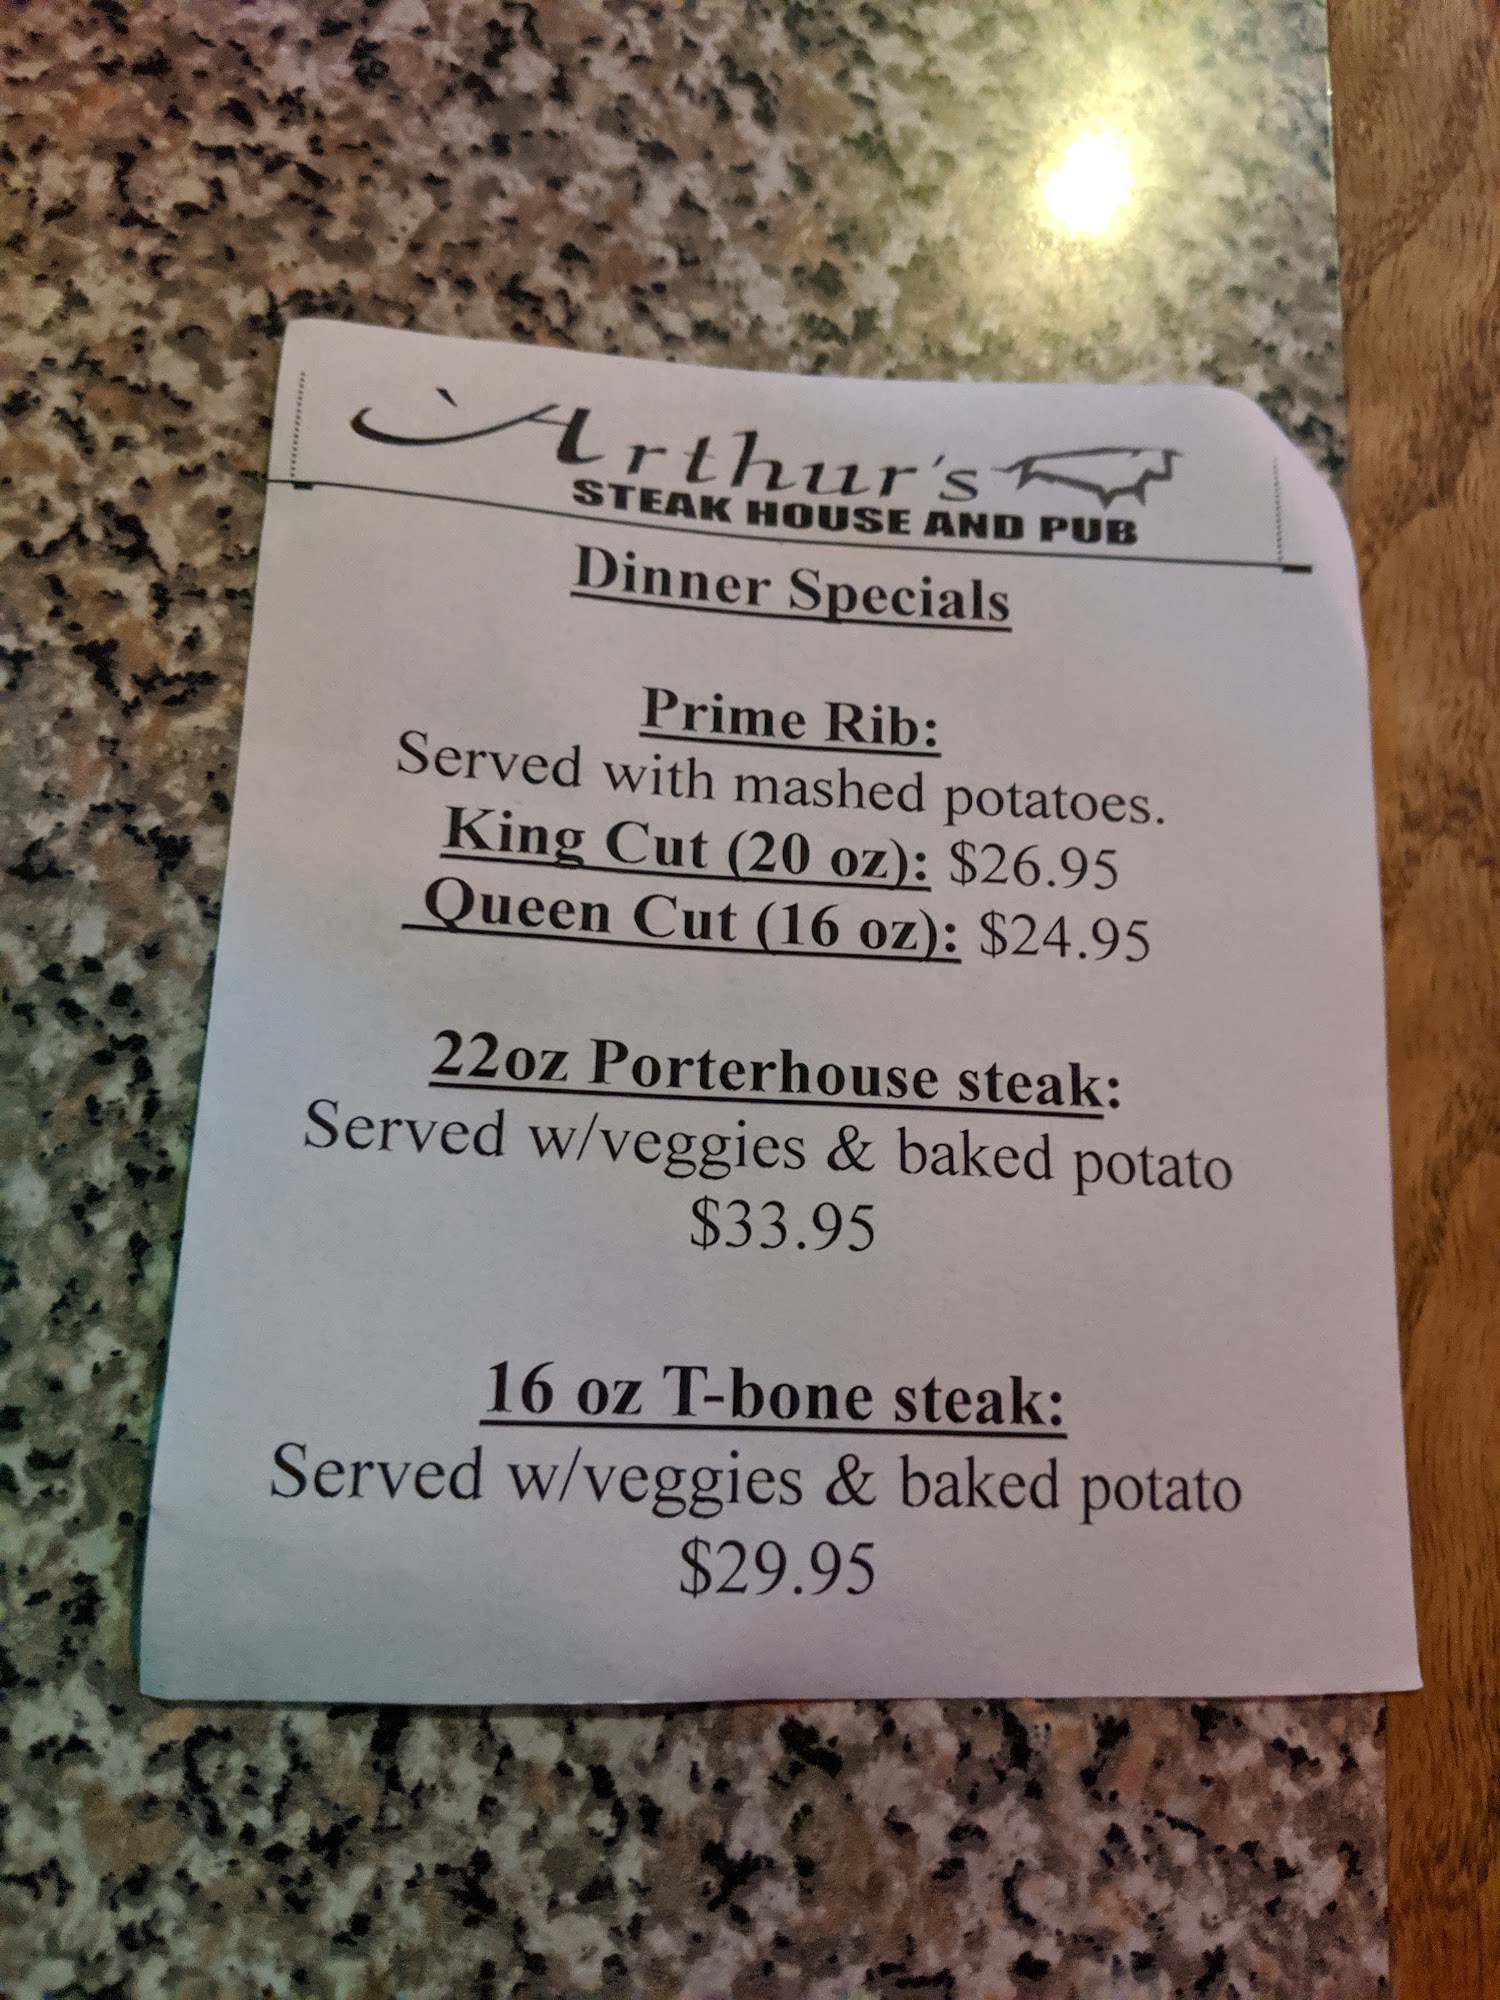 Arthur's
STEAK HOUSE AND PUB
Dinner Specials
Prime Rib:
Served with mashed potatoes.
King Cut (20 oz): $26.95
Queen Cut (16 oz): $24.95
22oz Porterhouse steak:
Served w/veggies & baked potato
$33.95
16 oz T-bone steak:
Served w/veggies & baked potato
$29.95